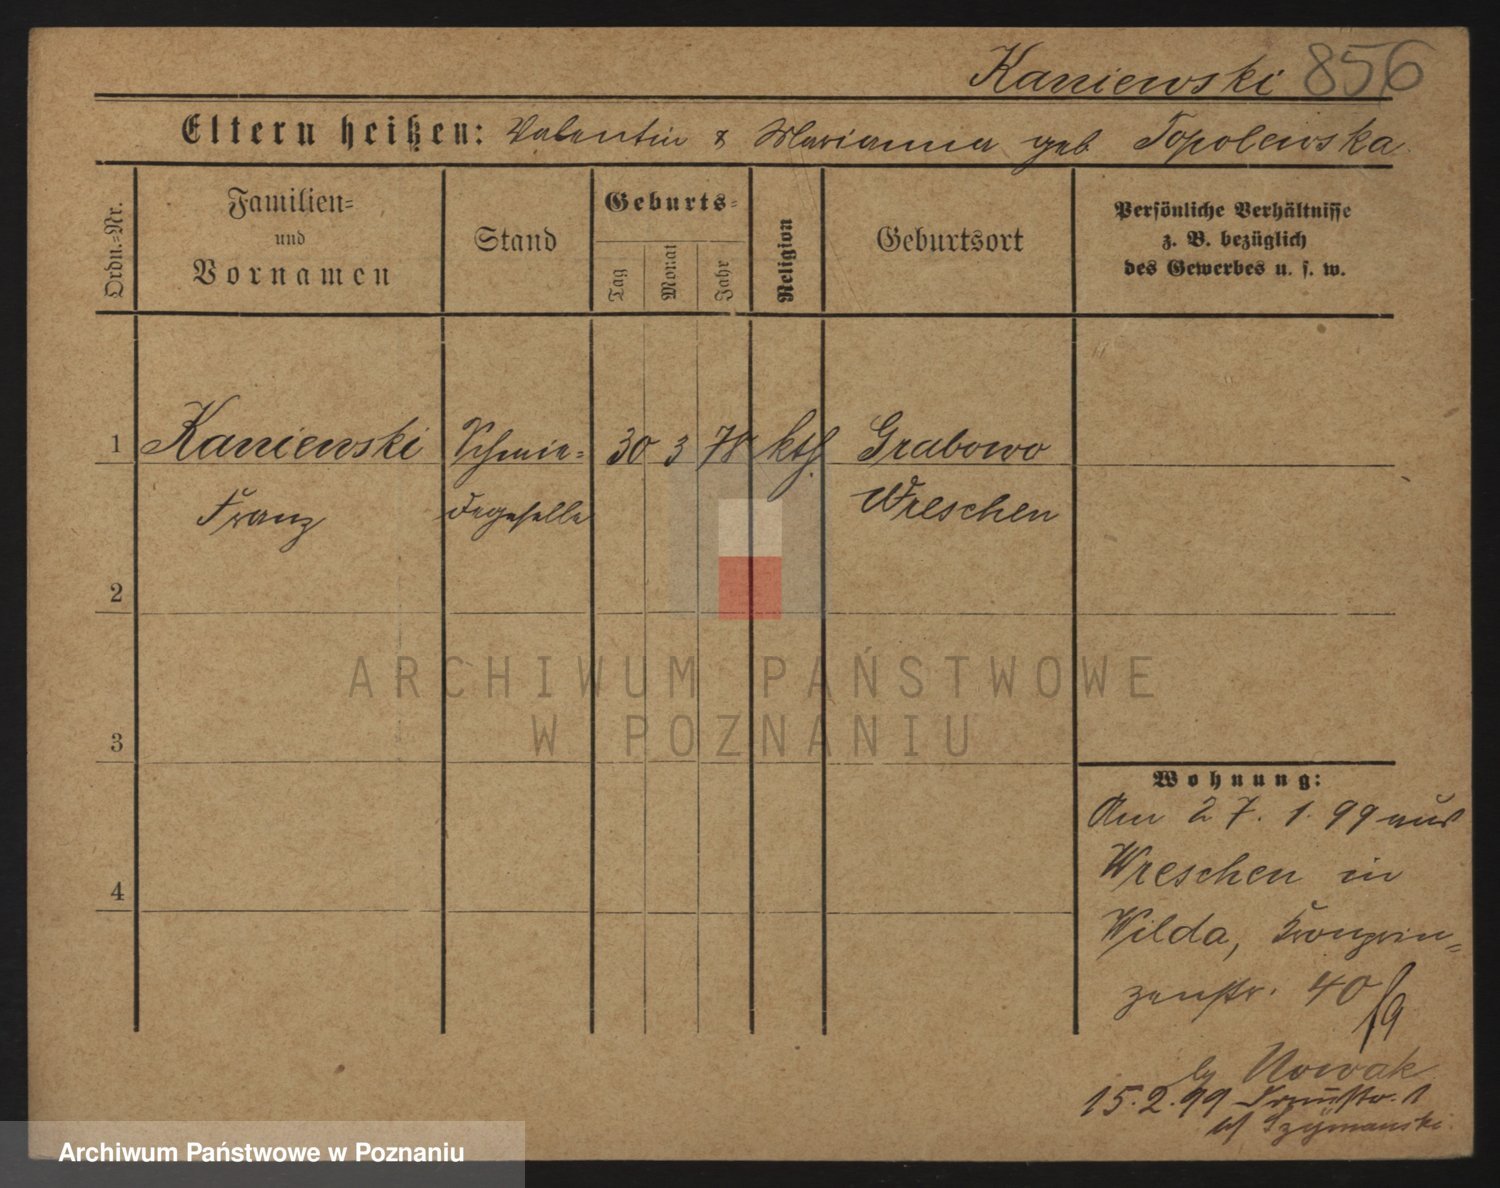 Kaniewski 856
Eltern heißen: Valentin & Marianna geb Topolewska
Ordn.=Nr.
Familien=
und
Vornamen
Stand
Geburts=
Tag
Monat
Jahr
Religion
Geburtsort
Persönliche Verhältnisse
z. B. bezüglich
des Gewerbes u. s. w.
1 Kaniewski Schmie= 30 3 78 kth Grabowo
Franz degeselle Wreschen
2
3
4
Wohnung:
Am 27. 1. 99 aus
Wreschen in
Wilda, Kronprin=
zenstr. 40
by Nowak
15.2.99
Szymanski
ARCHIWUM PAŃSTWOWE
W POZNANIU
Archiwum Państwowe w Poznaniu